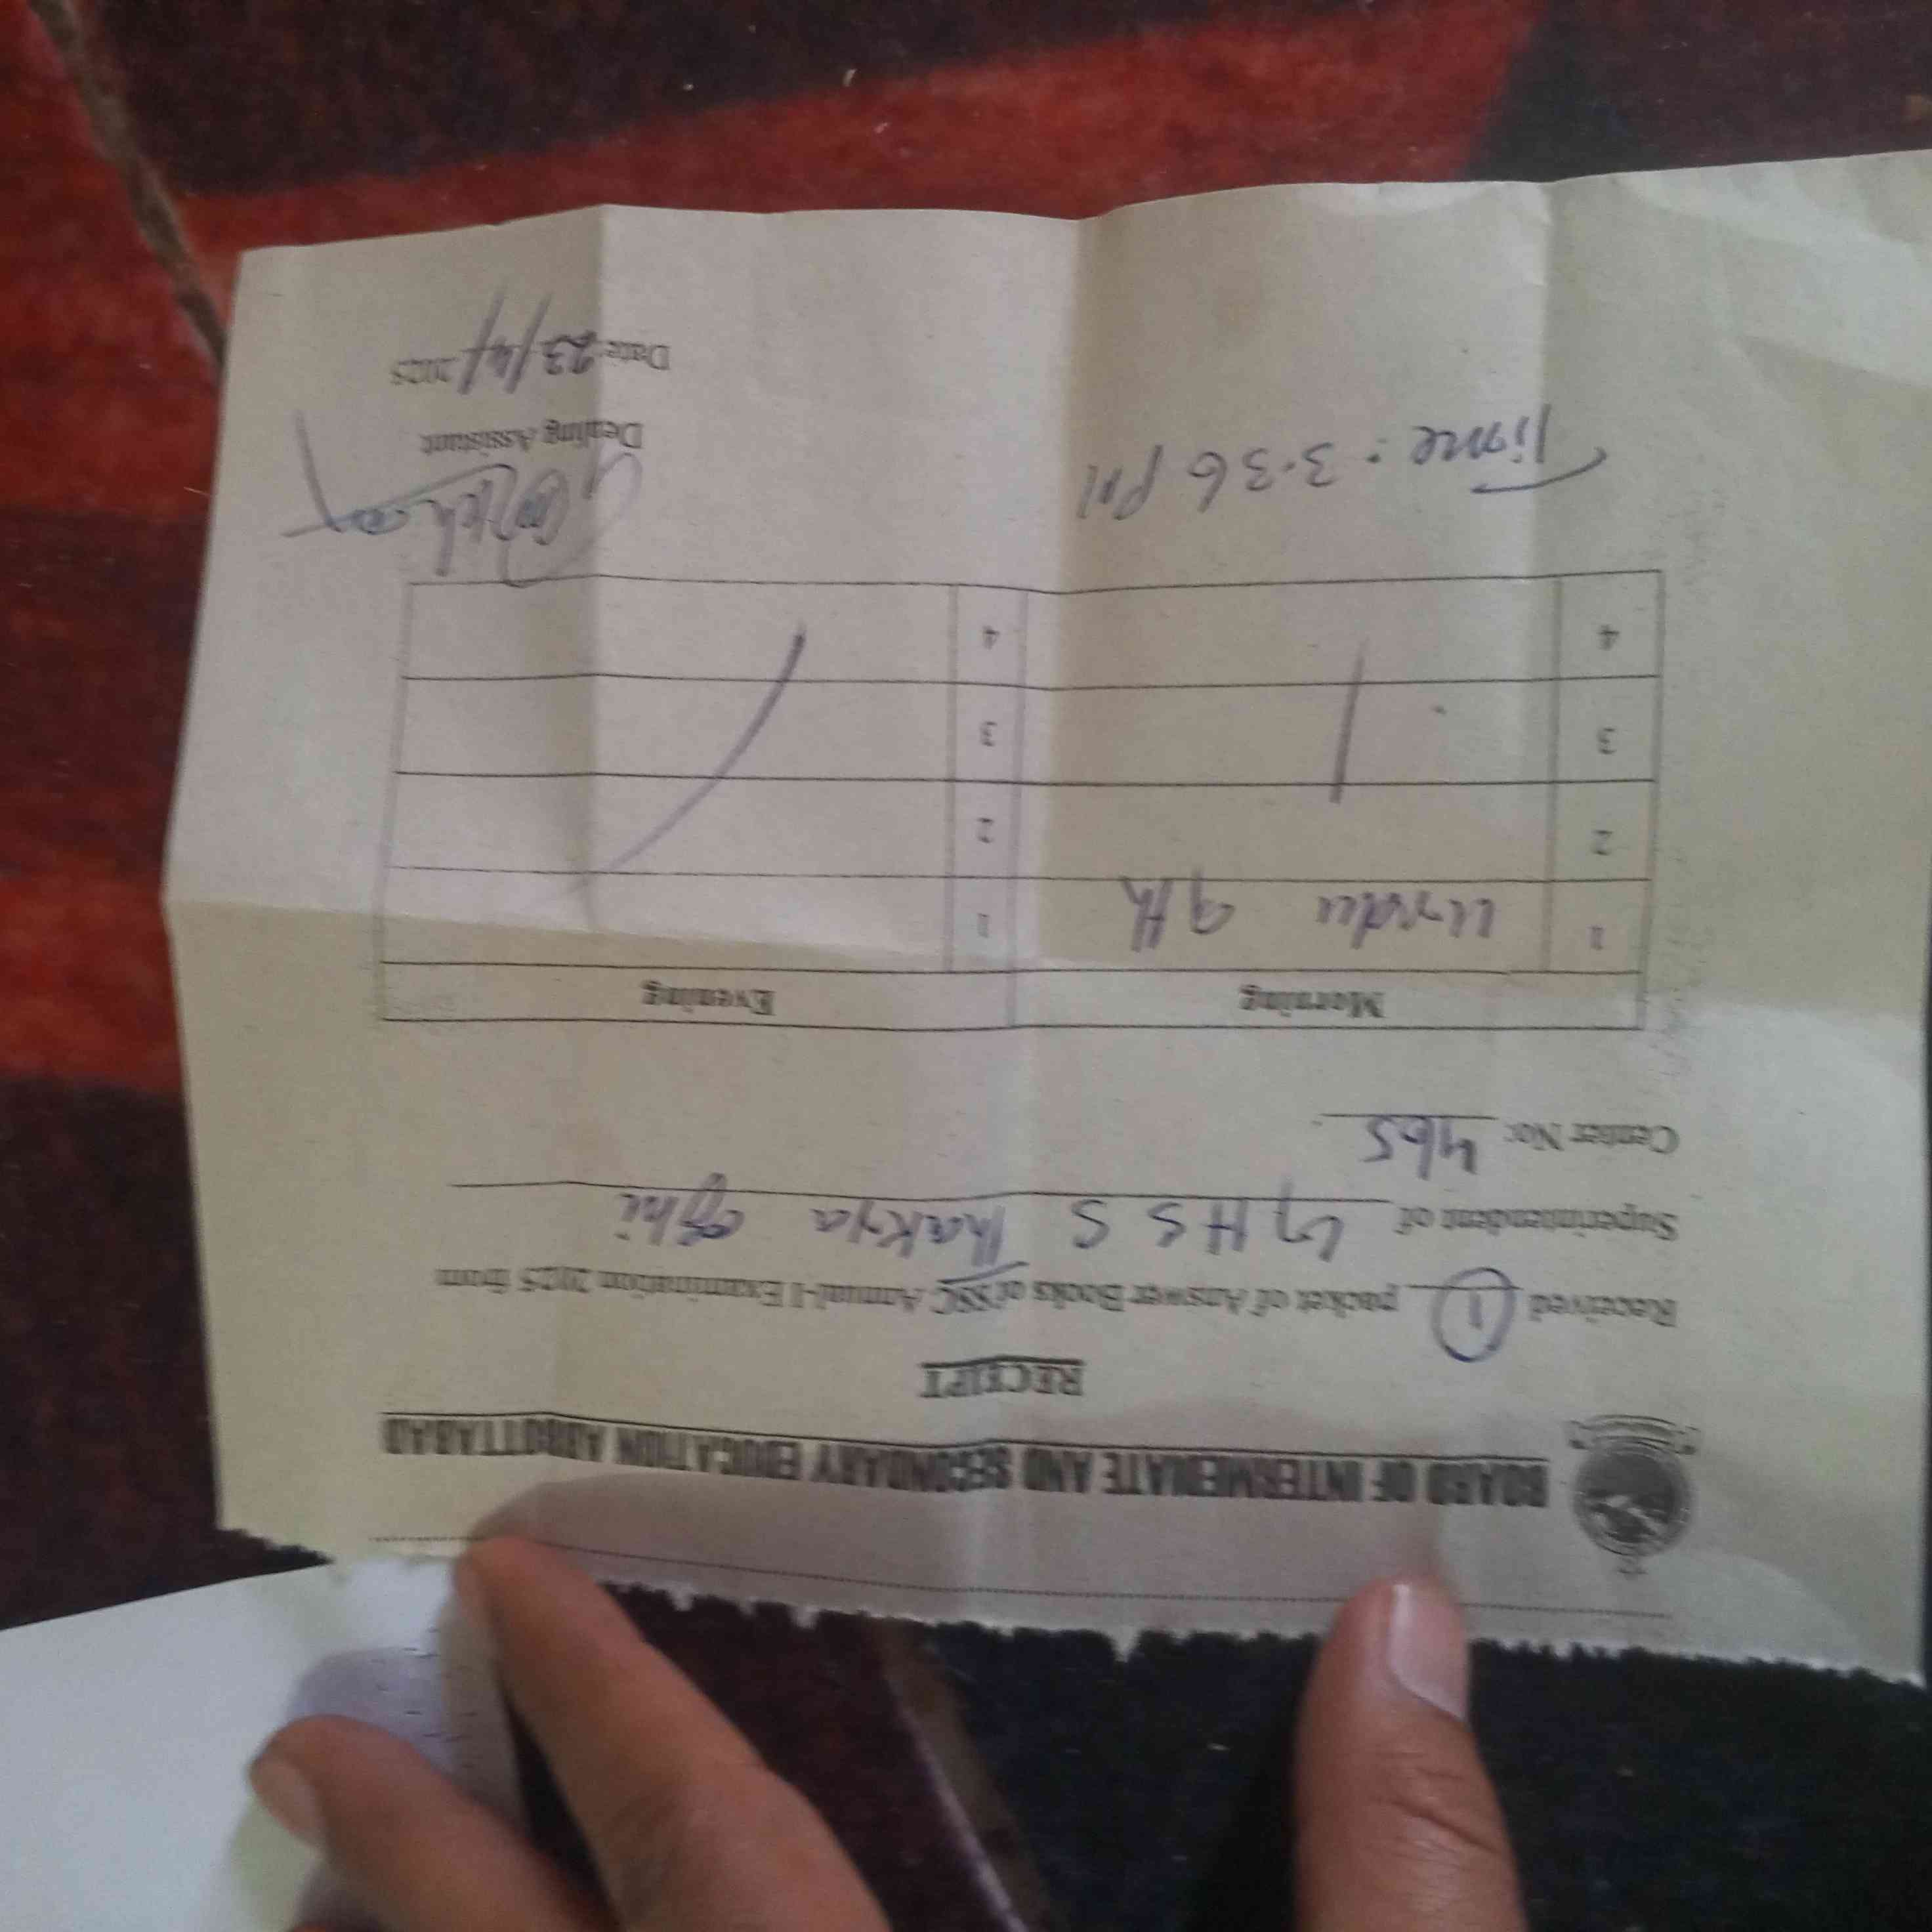 BOARD OF INTERMEDIATE AND SECONDARY EDUCATION ABBOTTABAD
RECEIPT
Received 1 packet of Answer Books of SSC Annual-I Examination 2025 from
Superintendent of GHSS Thakya
Center No: 465
Morning Evening
1 urdu 9th 1
2 2
3 3
4 4
Time: 3.36 PM
Dealing Assistant
Date: 23/4/2025